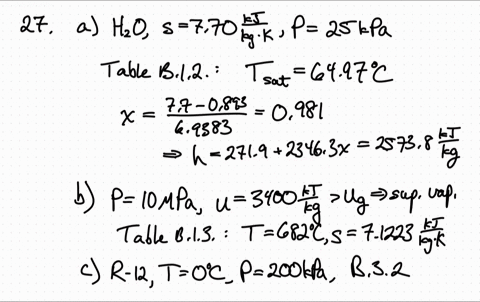 27. a) H₂O, s=7.70 kJ/kg·K, P=25kPa
Table B.1.2.: T_sat=64.97°C
x = (7.7-0.893)/6.9383 = 0.981
⇒ h=271.9+2346.3x = 2573.8 kJ/kg
b) P=10MPa, u=3400 kJ/kg >Ug ⇒ sup. vap.
Table B.1.3.: T=682°C, s=7.1223 kJ/kg·K
c) R-12, T=0°C, P=200kPa, B.3.2